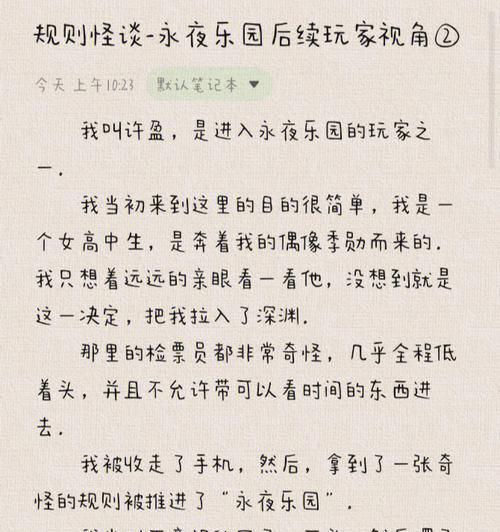 规则怪谈-永夜乐园后续玩家视角②
今天 上午10:23 默认笔记本
我叫许盈，是进入永夜乐园的玩家之
一.
我当初来到这里的目的很简单，我是一
个女高中生，是奔着我的偶像季勋而来的.
我只想着远远的亲眼看一看他，没想到就是
这一决定，把我拉入了深渊.
那里的检票员都非常奇怪，几乎全程低
着头，并且不允许带可以看时间的东西进
去.
我被收走了手机，然后，拿到了一张奇
怪的规则被推进了“永夜乐园”.